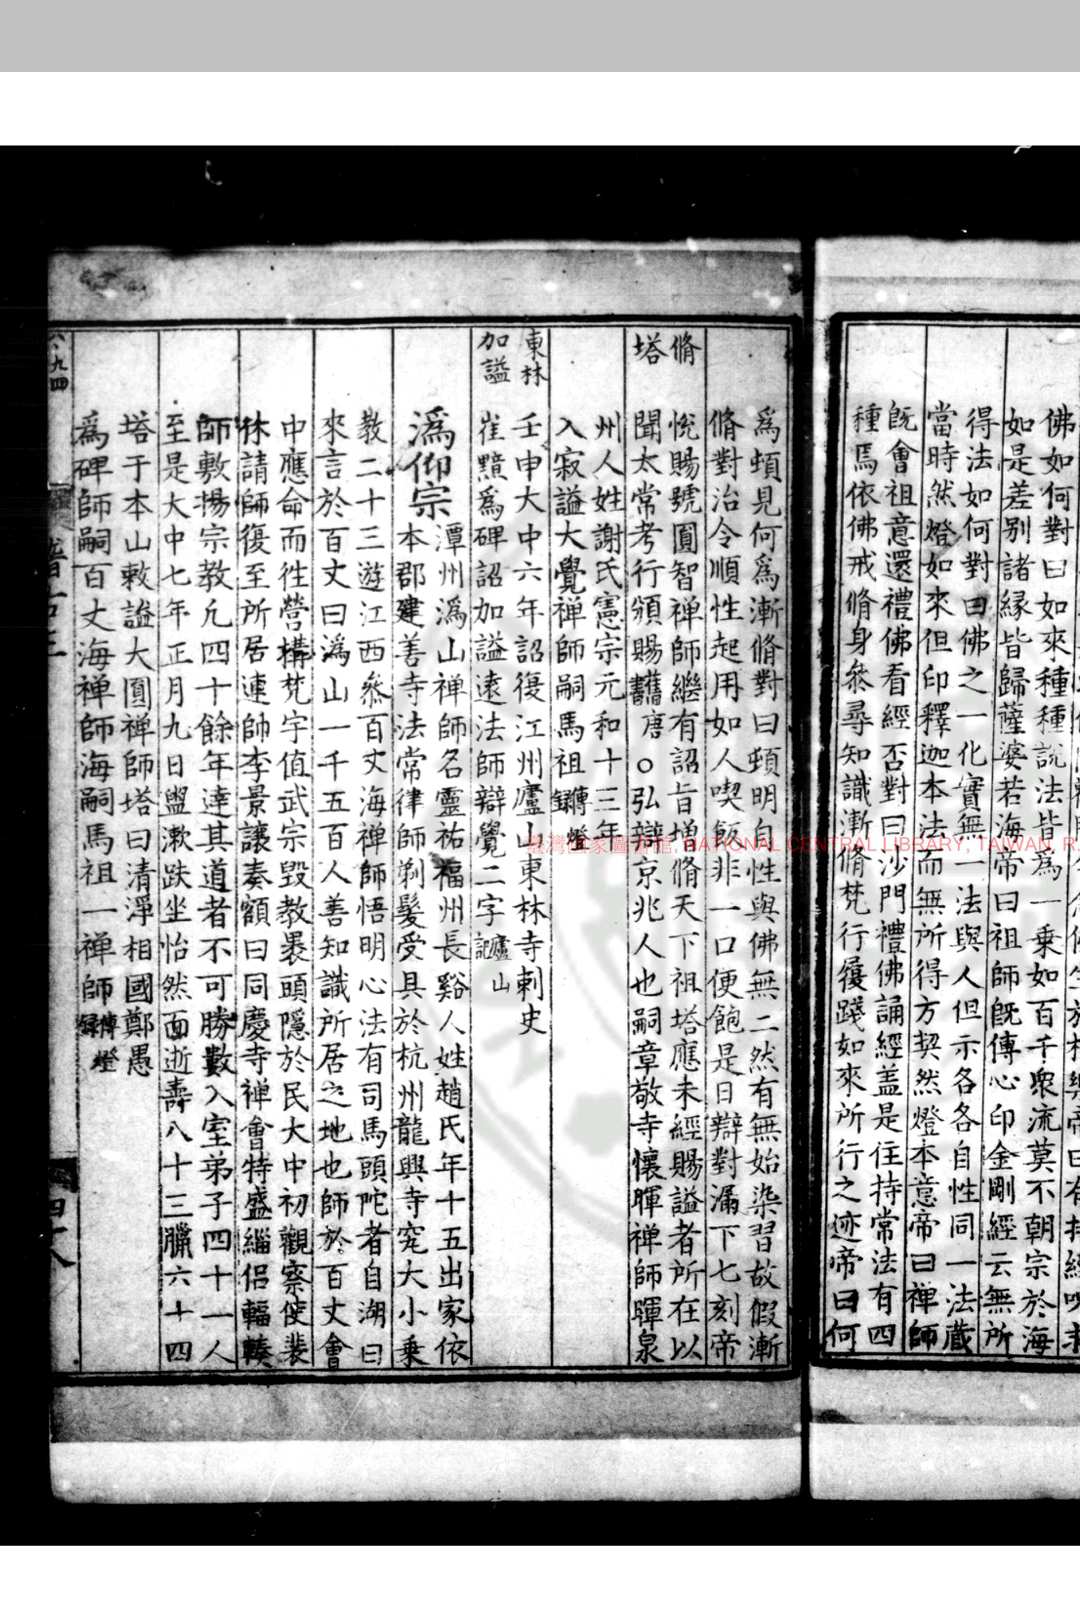 佛如何對曰如來種種說法皆為一乗如百千衆流莫不朝宗於海
如是差别諸緣皆歸薩婆若海帝曰祖師旣傳心印金剛經云無所
得法如何對曰佛之一化實無一法與人但示各各自性同一法藏
當時然燈如來但印釋迦本法而無所得方契然燈本意帝曰禅師
旣會祖意還禮佛看經否對曰沙門禮佛誦經盖是住持常法有四
種焉依佛戒脩身叅尋知識漸脩梵行履踐如來所行之迹帝曰何
為頓見何為漸脩對曰頓明自性與佛無二然有無始染習故假漸
脩對治令順性起用如人喫飯非一口便飽是日辯對漏下七刻帝
脩
塔
悅賜號圓智禅師繼有詔旨增脩天下祖塔應未經賜謚者所在以
聞太常考行頒賜舊唐○弘辯京兆人也嗣章敬寺懷暉禅師暉泉
州人姓謝氏憲宗元和十三年
入寂謚大覺禅師嗣馬祖傳燈錄
東林
加謚
壬申大中六年詔復江州廬山東林寺刺史
崔黯為碑詔加謚遠法師辯覺二字廬山記
溈仰宗
潭州溈山禅師名靈祐福州長谿人姓趙氏年十五出家依
本郡建善寺法常律師剃髮受具於杭州龍興寺究大小乗
教二十三遊江西叅百丈海禅師悟明心法有司馬頭陀者自湖曰
來言於百丈曰溈山一千五百人善知識所居之地也師於百丈會
中應命而徃營構梵宇值武宗毀教褁頭隱於民大中初觀察使裴
休請師復至所居連帥李景讓奏額曰同慶寺禅會特盛緇侶輻輳
師敷揚宗教凢四十餘年達其道者不可勝數入室弟子四十一人
至是大中七年正月九日盥漱趺坐怡然而逝壽八十三臘六十四
塔于本山敕謚大圓禅師塔曰清淨相國鄭愚
為碑師嗣百丈海禅師海嗣馬祖一禅師傳燈錄
六九四
四十八
臺灣國家圖書館, NATIONAL CENTRAL LIBRARY, TAIWAN, R.